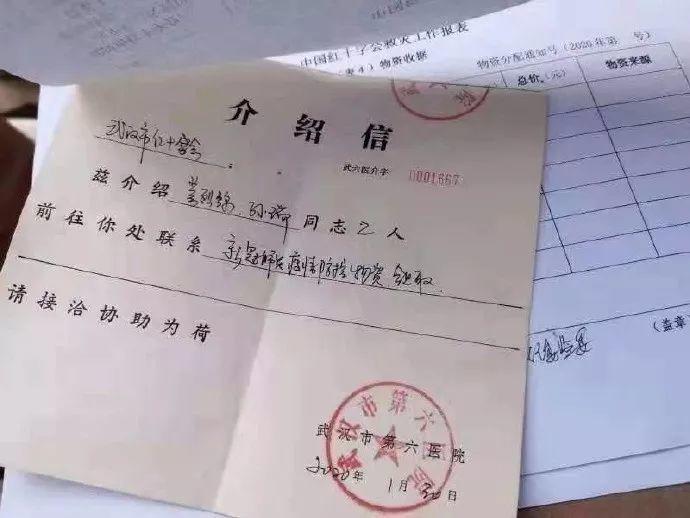 中国红十字会救灾工作报表
(表4) 物资收据
物资分配通知号 (2020年第 号)
总价 (元)
物资来源
(盖章
介绍信
武汉市红十字会:
武六医介字 0001667
兹介绍 孙 同志乙人
前往你处联系 新冠肺炎疫情防控物资领取
请接洽协助为荷
武汉市第六医院
武汉市第六医院
2020年1月30日